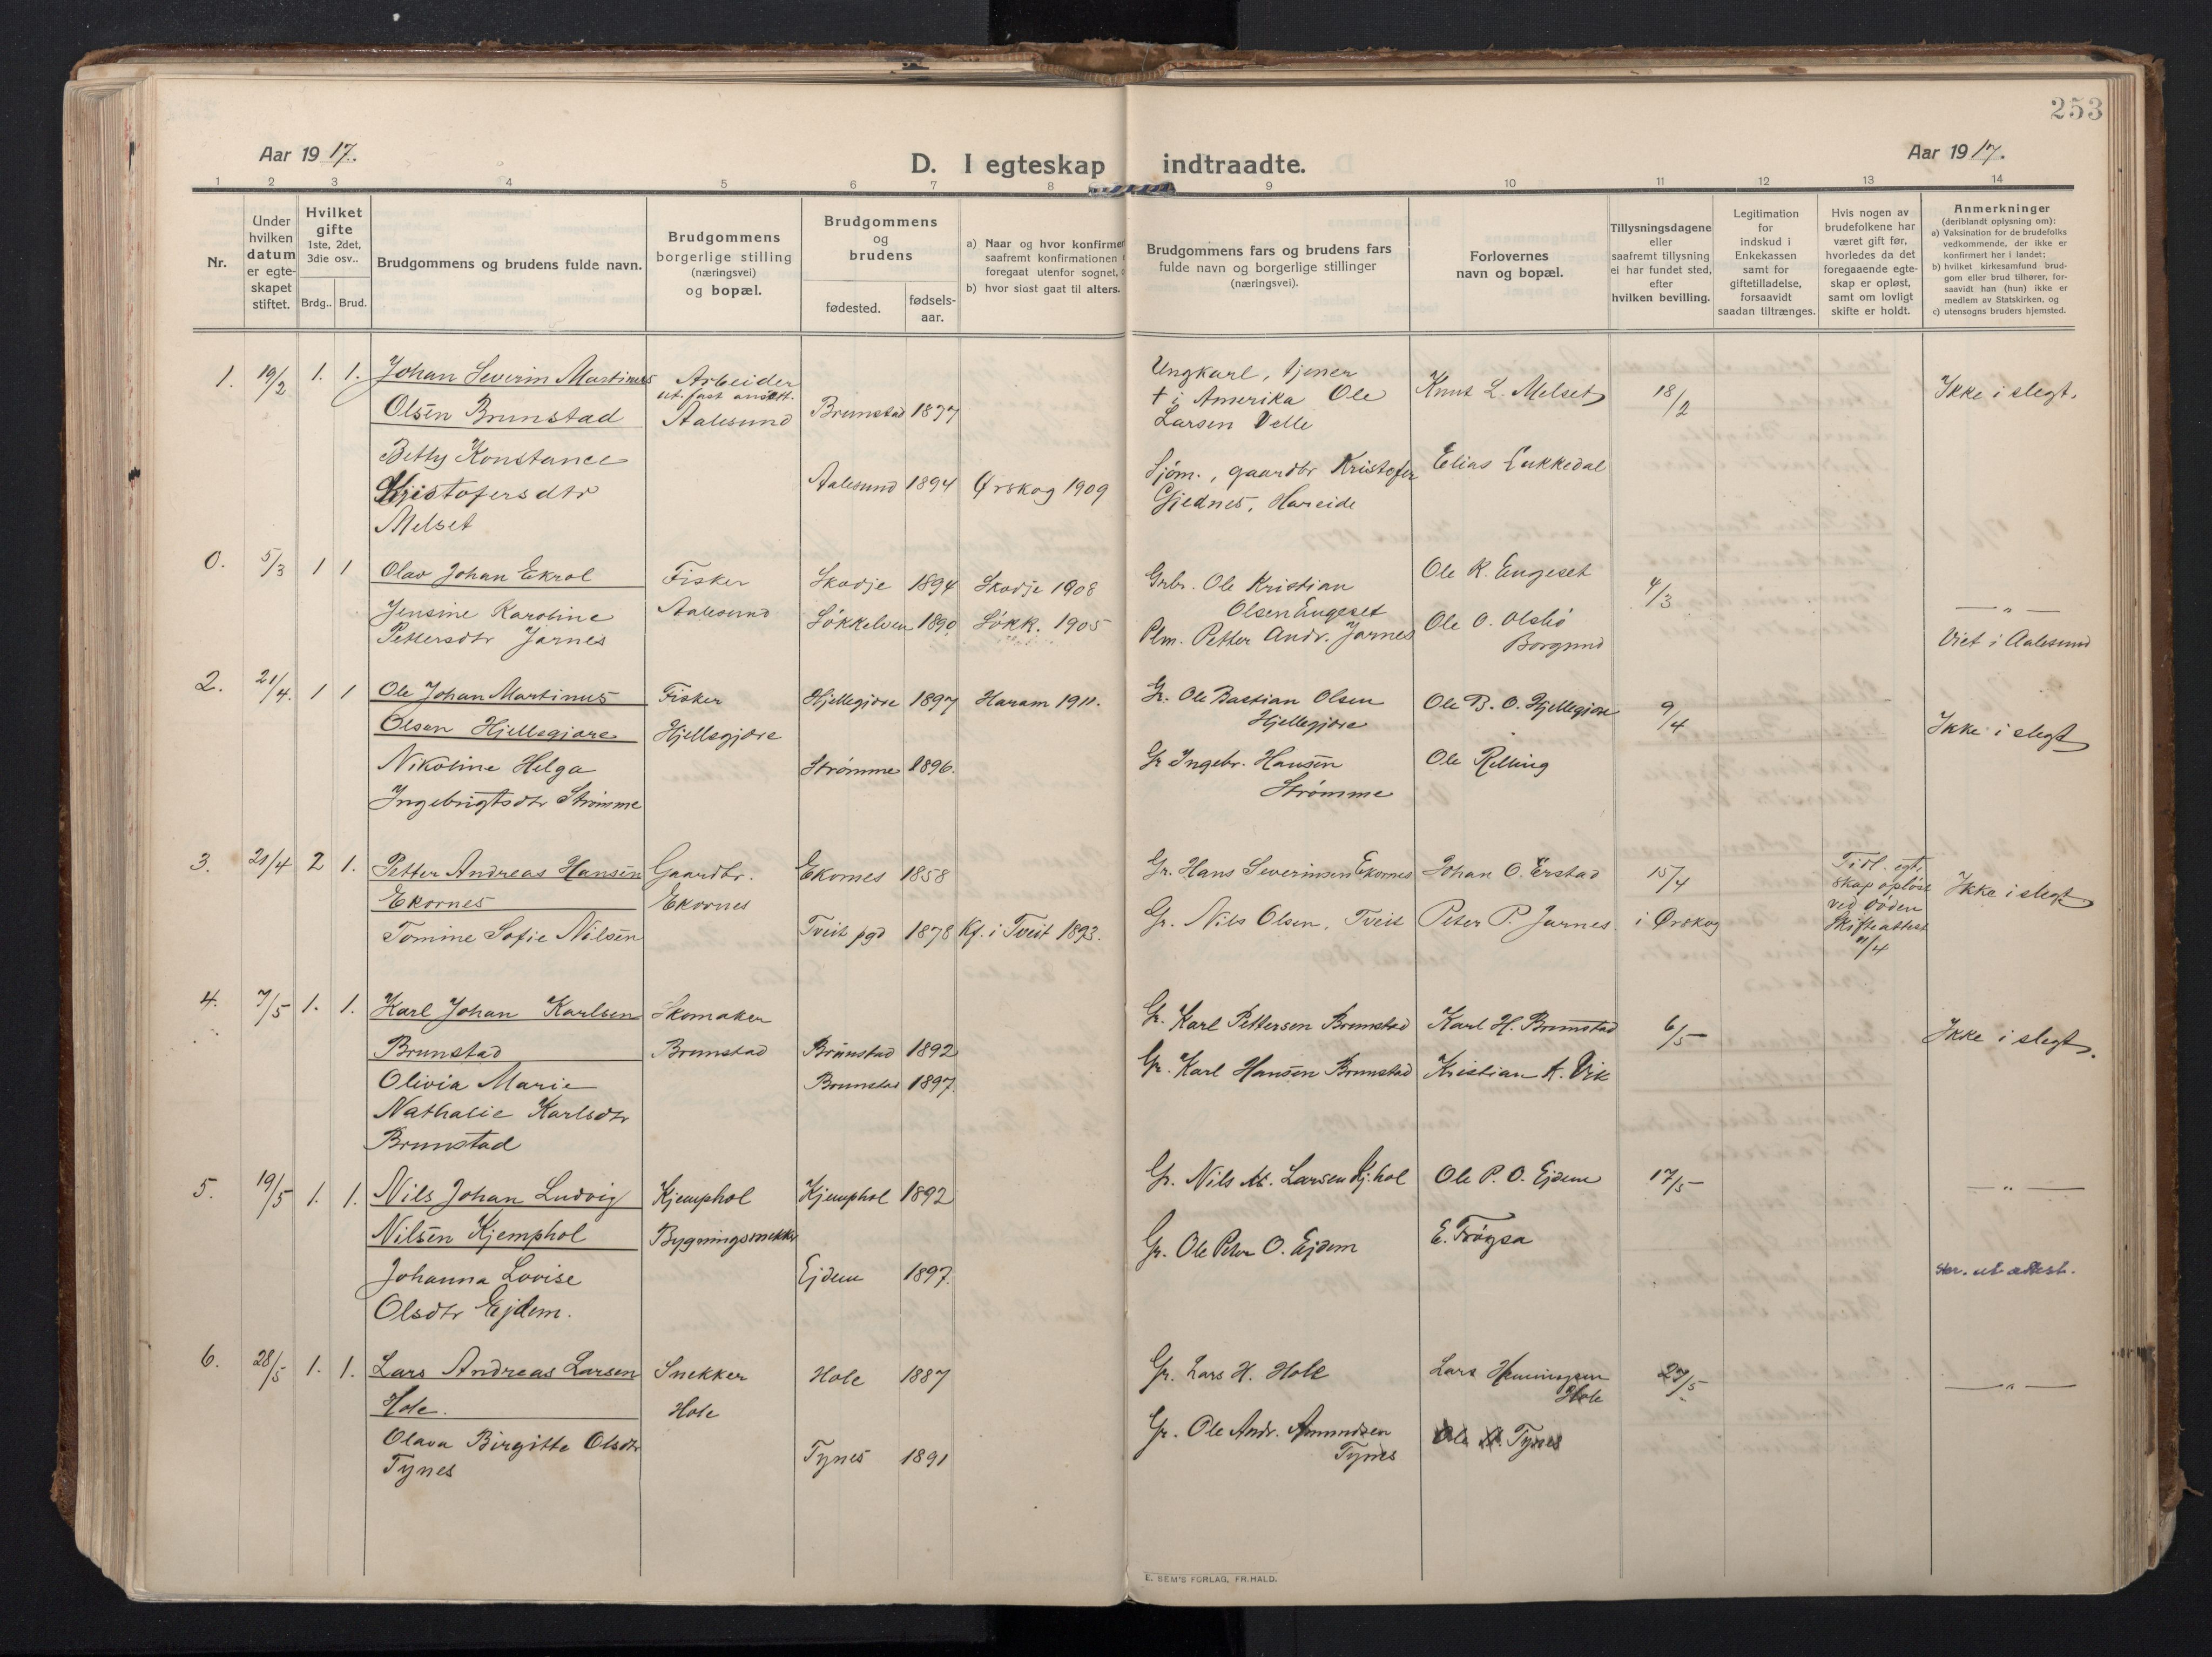 253
Aar 1917.
D. I egteskap indtraadte.
Aar 1917.
1 2 3 4 5 6 7 8 9 10 11 12 13 14
Nr.
Under
hvilken
datum
er egte-
skapet
stiftet.
Hvilket
gifte
1ste, 2det,
3die osv..
Brdg.. Brud.
Brudgommens og brudens fulde navn.
Brudgommens
borgerlige stilling
(næringsvei)
og bopæl.
Brudgommens
og
brudens
fødested.
fødsels-
aar.
a) Naar og hvor konfirmer
saafremt konfirmationen
foregaat utenfor sognet,
b) hvor sidst gaat til alters.
Brudgommens fars og brudens fars
fulde navn og borgerlige stillinger
(næringsvei).
Forlovernes
navn og bopæl.
Tillysningsdagene
eller
saafremt tillysning
ei har fundet sted,
efter
hvilken bevilling.
Legitimation
for
indskud i
Enkekassen
samt for
giftetilladelse,
forsaavidt
saadan tiltrænges.
Hvis nogen av
brudefolkene har
været gift før,
hvorledes da det
foregaaende egte-
skap er opløst,
samt om lovligt
skifte er holdt.
Anmerkninger
(deriblandt oplysning om):
a) Vaksination for de brudefolks
vedkommende, der ikke er
konfirmert her i landet;
b) hvilket kirkesamfund brud-
gom eller brud tilhører, for-
saavidt han (hun) ikke er
medlem av Statskirken, og
c) utensogns bruders hjemsted.
1. 19/2 1. 1.
Johan Severin Martinus
Olsen Brunstad
Betty Konstance
Kristofersdtr
Melset
Arbeider
ut. fast ansett.
Aalesund
Brunstad 1897
Aalesund 1894 Ørskog 1909
Ungkarl, tjener
† i Amerika Ole
Larsen Velle
Sjøm., gaardbr Kristofer
Gjednes, Hareide
Knut L. Melset
Elias Lukkedal
18/2
Ikke i slegt.
0. 5/3 1 1
Olav Johan Ekrol
Jensine Karoline
Pettersdtr Jarnes
Fisker
Aalesund
Skodje 1894 Skodje 1908
Søkkelven 1890. Søkk. 1905
Grbr. Ole Kristian
Olsen Engeset
Plm. Petter Andr. Jarnes
Ole K. Engeset
Ole O. Olsbø
Borgund
4/3
— " —
Viet i Aalesund
2. 21/4. 1 1
Ole Johan Martinus
Olsen Hjellegjære
Nikoline Helga
Ingebrigtsdtr Strømme
Fisker
Hjellegjære
Hjellegjære 1897 Haram 1911.
Strømme 1896.
Gr. Ole Bastian Olsen
Hjellegjære
Gr Ingebr. Hansen
Strømme
Ole B. O. Hjellegjære
Ole Relling
9/4
Ikke i slegt
3. 21/4 2 1.
Petter Andreas Hansen
Ekornes
Tomine Sofie Nilsen
Gaardbr.
Ekornes
Ekornes 1858
Tveit pgd 1878 Kf. i Tveit 1893.
Gr. Hans Severinsen Ekornes
Gr. Nils Olsen, Tveit
Johan O. Erstad
Peter P. Jarnes
15/4
i Ørskog
Tidl. egt.
skap opløst
ved døden
Skifteattest
Ikke i slegt
4. 7/5 1. 1.
Karl Johan Karlsen
Brunstad
Olivia Marie
Nathalie Karlsdtr
Brunstad
Skomaker
Brunstad
Brunstad 1892
Brunstad 1897.
Gr. Karl Pettersen Brunstad
Gr. Karl Hansen Brunstad
Karl H. Brunstad
Kristian K. Vik
6/5
Ikke i slegt.
5. 19/5 1. 1.
Nils Johan Ludvig
Nilsen Kjemphol
Johanna Lovise
Olsdtr Ejdem.
Kjemphol
Bygningssnekker
Kjemphol 1892
Ejdem 1897.
Gr. Nils M. Larsen Kj.hol
Gr. Ole Peter O. Ejdem
Ole P. O. Ejdem
E. Frøysa
17/5
— " —
ut attest.
6. 28/5 1. 1.
Lars Andreas Larsen
Hole.
Olava Birgitte Olsdtr
Tynes
Snekker
Hole
Hole 1887
Tynes 1891
Gr. Lars H. Hole
Gr. Ole Andr. Amundsen
Tynes
Lars Henningsen
Hole
Ole Tynes
27/5
— " —
E. SEM'S FORLAG, FR.HALD.